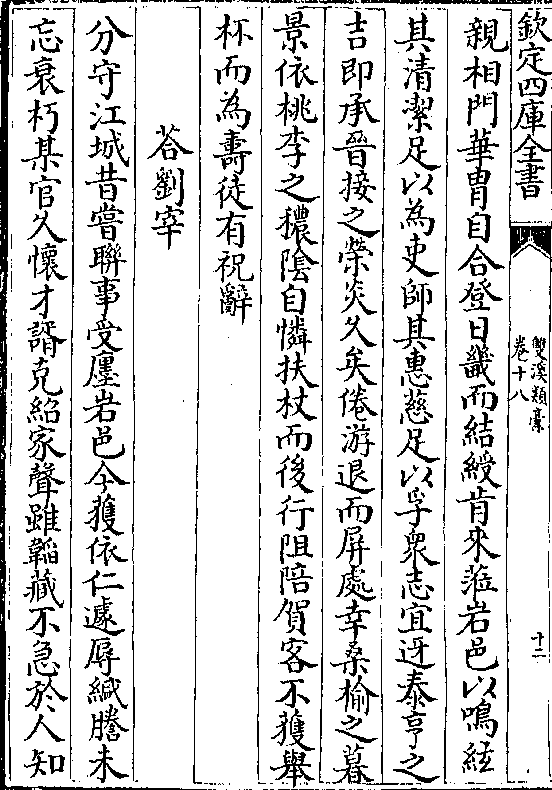 欽定四庫全書
雙溪類稾
卷十八
十二
親相門華胄自合登日畿而結綬肯來蒞岩邑以鳴絃
其清潔足以為吏師其惠慈足以孚衆志宜迓泰亨之
吉即承晉接之榮炎久矣倦游退而屏處幸桑榆之暮
景依桃李之穠陰自憐扶杖而後行阻陪賀客不獲舉
杯而為壽徒有祝辭
荅劉宰
分守江城昔嘗聯事受廛岩邑今獲依仁遽辱緘謄未
忘衰朽某官久懷才諝克紹家聲雖韜藏不急於人知